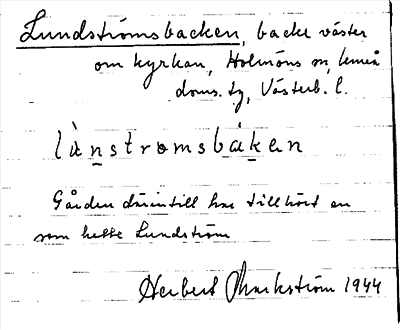 Lundströmsbacken, backe väster
om kyrkan, Holmöns sn, Umeå
doms. tg, Västerb. l.
lùnstromsbáken
Gården därintill har tillhört en
som hette Lundström
Herbert Markström 1944